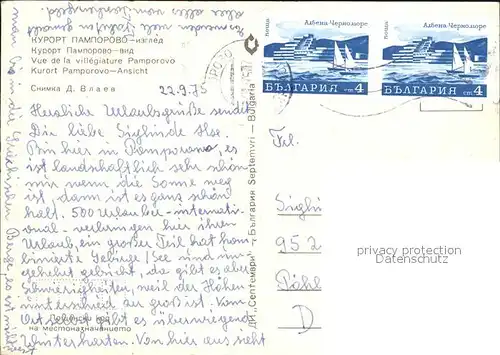 КУРОРТ ПАМПОРОВО—изглед
Курорт Пампорово—вид
Vue de la villégiature Pamporovo
Kurort Pamporovo—Ansicht
Снимка Д. Влаев
22.9.75
Herzliche Urlaubsgrüße sendet
Dir liebe Siglinde Ilse.
Bin hier in Pamporovo, es
ist landschaftlich sehr schön
nur wenn die Sonne weg
ist, dann ist es ganz schön
kalt. 500 Urlauber – internati-
onal – verbringen hier ihren
Urlaub, ein großer Teil hat kom-
binierte Gebirge/See und um-
gekehrt gebucht, da gibt es aber
Schwierigkeiten, weil der Höhen-
unterschied zu groß ist. Vom
Ort selbst gibt es überwiegend
Winterkarten. Von hier aus sieht
Пощенски код
на местоназначението
ДИ „Септември" — България Septemvri — Bulgaria
поща Албена-Черноморе
БЪЛГАРИЯ ст 4
поща Албена-Черноморе
БЪЛГАРИЯ ст 4
Frl.
Sigli
952
Pöhl
D
privacy protection
www.ansichtskarten.com